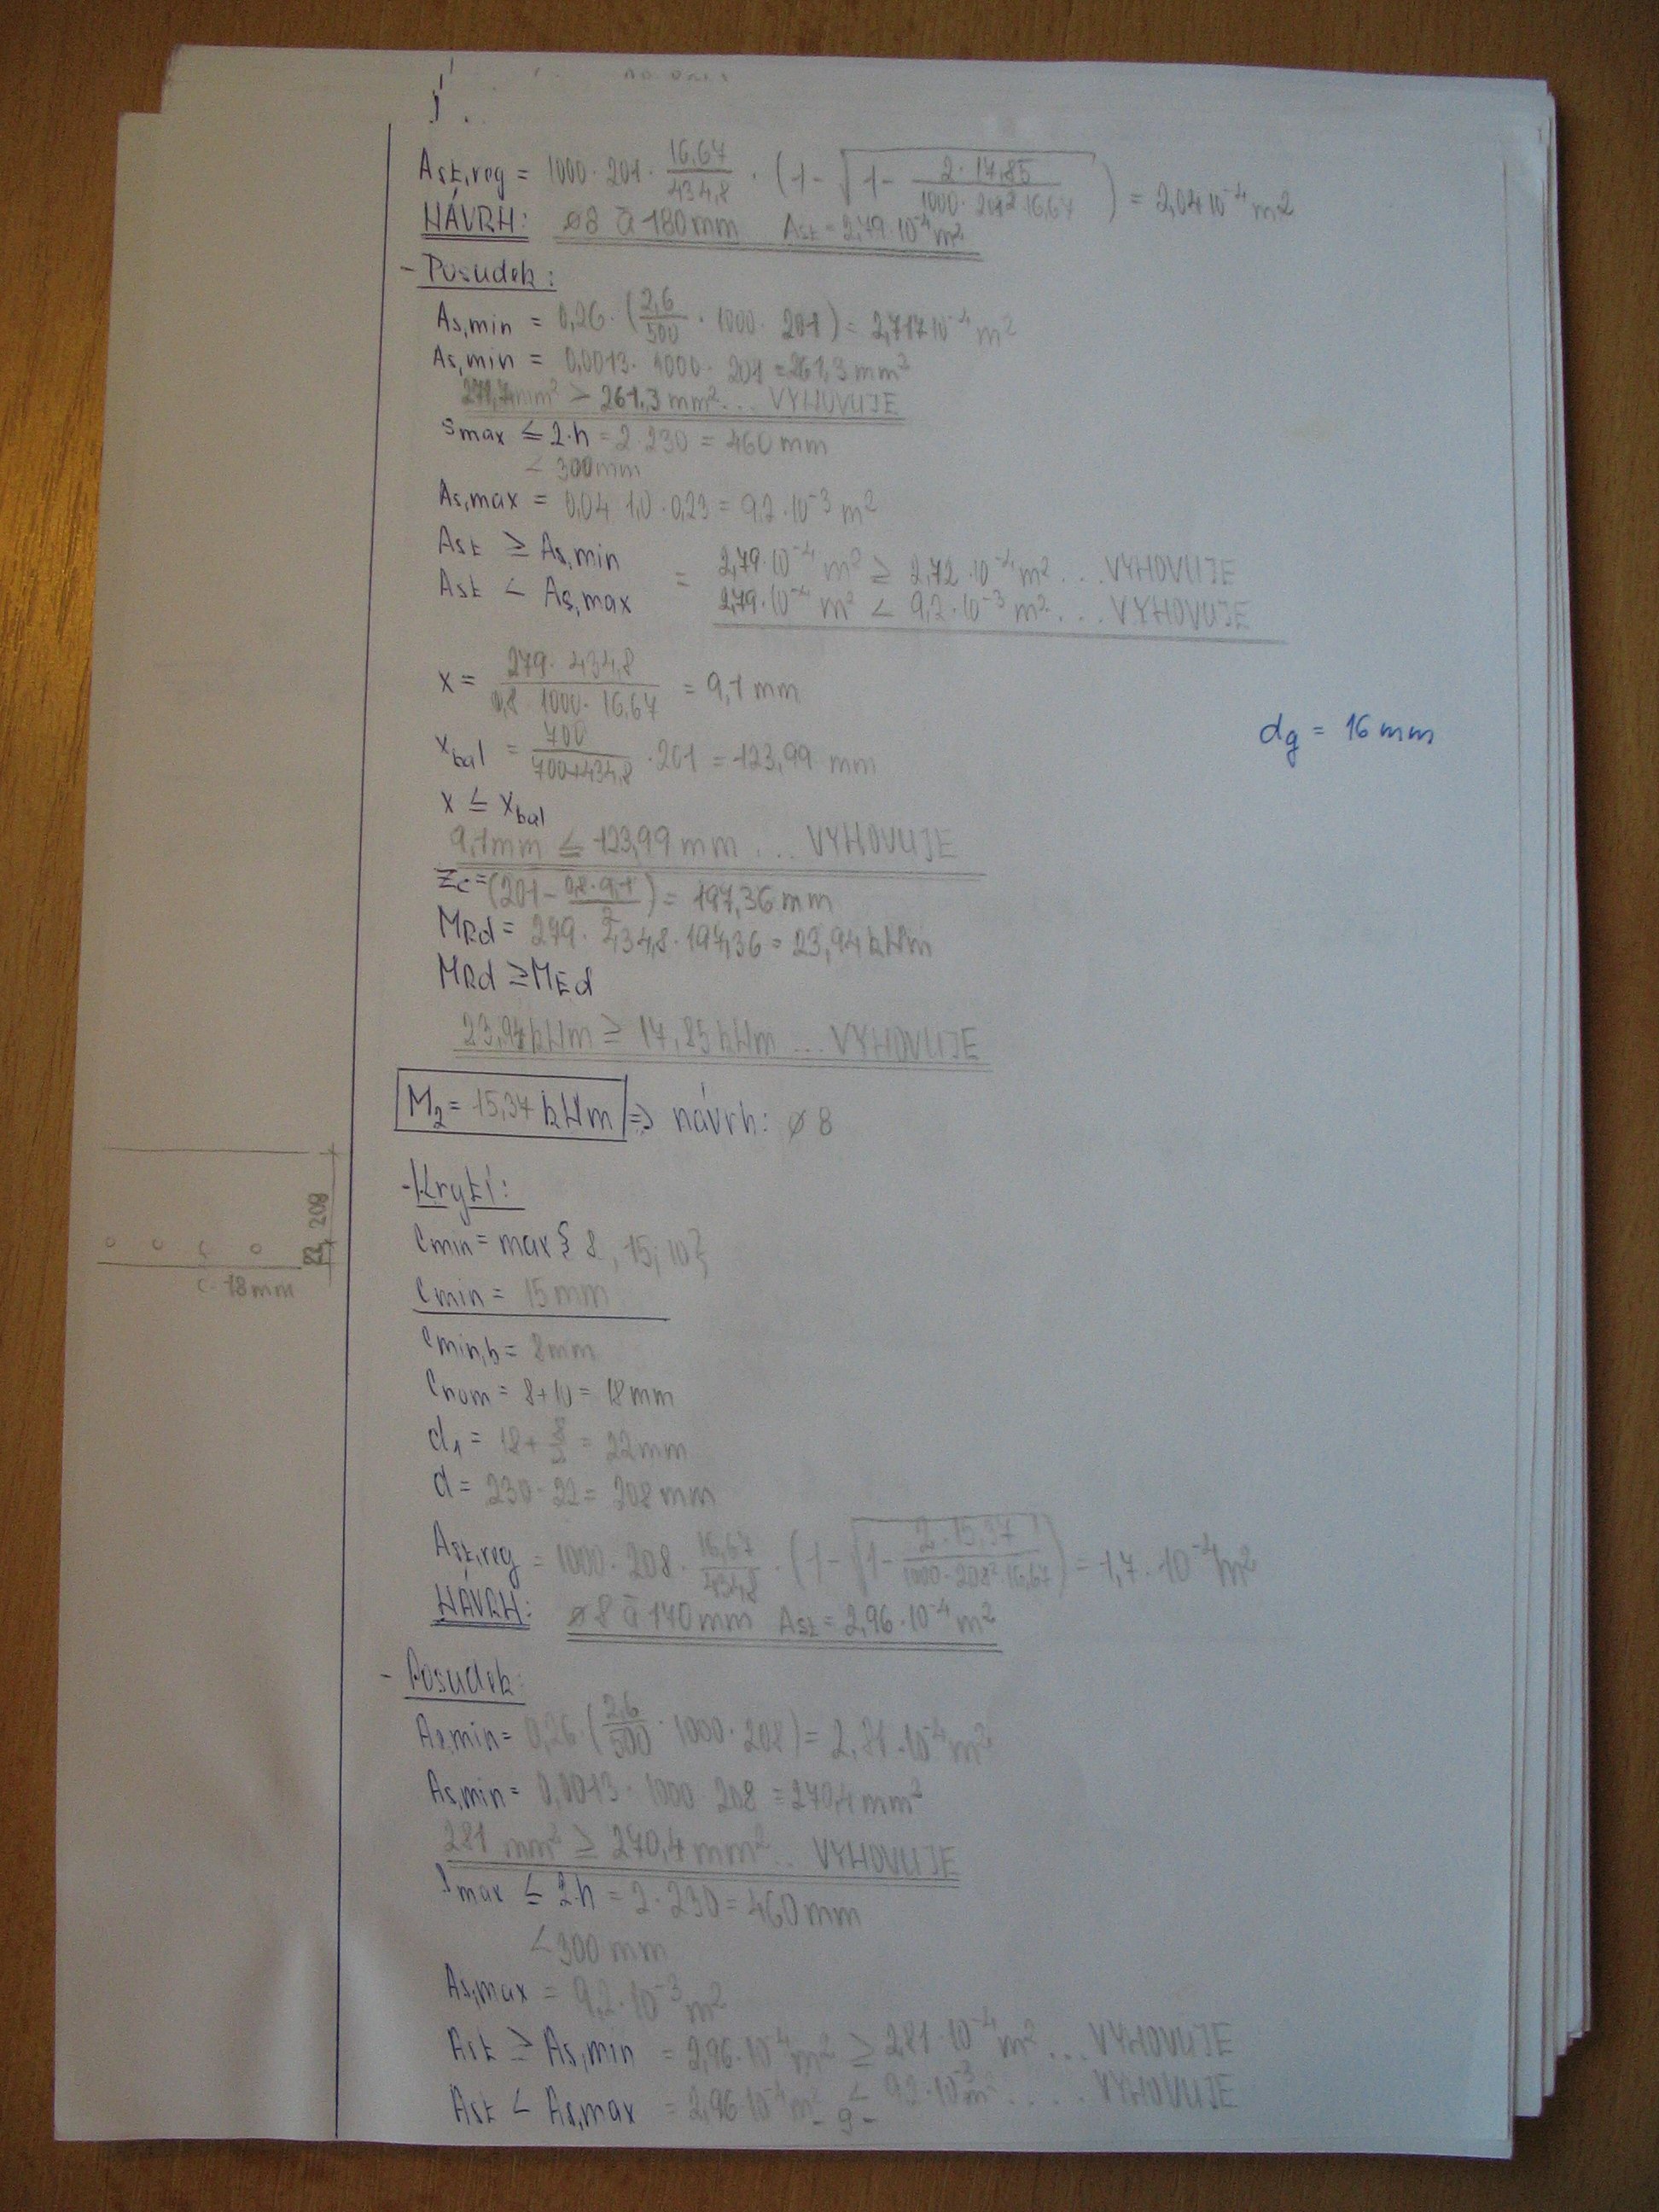 A_st,req = 1000 · 201 · 16,67/434,8 · (1 - √(1 - 2 · 17,85/(1000 · 201² · 16,67))) = 2,04·10⁻⁴ m²
NÁVRH: ø8 ā 180mm A_st = 2,79·10⁻⁴ m²
- Posudek:
A_s,min = 0,26 · (2,6/500 · 1000 · 201) = 2,717·10⁻⁴ m²
A_s,min = 0,0013 · 1000 · 201 = 261,3 mm²
271,7mm² > 261,3 mm² ... VYHOVUJE
s_max ≤ 2·h = 2·230 = 460mm
< 300mm
A_s,max = 0,04 · 1,0 · 0,23 = 9,2·10⁻³ m²
A_st ≥ A_s,min = 2,79·10⁻⁴ m² ≥ 2,72·10⁻⁴ m² ... VYHOVUJE
A_st < A_s,max 2,79·10⁻⁴ m² < 9,2·10⁻³ m² ... VYHOVUJE
x = 279 · 434,8/(0,8 · 1000 · 16,67) = 9,1 mm
d_g = 16 mm
x_bal = 700/(700+434,8) · 201 = 123,99 mm
x ≤ x_bal
9,1mm ≤ 123,99 mm ... VYHOVUJE
z_c = (201 - 0,8·9,1/2) = 197,36 mm
M_Rd = 279 · 434,8 · 197,36 = 23,94 kNm
M_Rd ≥ M_Ed
23,94 kNm ≥ 17,85 kNm ... VYHOVUJE
M₂ = 15,37 kNm => návrh: ø 8
- Krytí:
c_min = max { 8, 15, 10 }
c_min = 15mm
c_min,b = 8mm
c_nom = 8+10 = 18mm
d₁ = 18 + 8/2 = 22mm
d = 230 - 22 = 208mm
208
22
c = 18mm
A_st,req = 1000 · 208 · 16,67/434,8 · (1 - √(1 - 2 · 15,37/(1000 · 208² · 16,67))) = 1,7·10⁻⁴ m²
NÁVRH: ø8 ā 170mm A_st = 2,96·10⁻⁴ m²
- Posudek:
A_s,min = 0,26 · (2,6/500 · 1000 · 208) = 2,81·10⁻⁴ m²
A_s,min = 0,0013 · 1000 · 208 = 270,4 mm²
281 mm² ≥ 270,4 mm² ... VYHOVUJE
s_max ≤ 2·h = 2·230 = 460mm
< 300 mm
A_s,max = 9,2·10⁻³ m²
A_st ≥ A_s,min = 2,96·10⁻⁴ m² ≥ 2,81·10⁻⁴ m² ... VYHOVUJE
A_st < A_s,max = 2,96·10⁻⁴ m² < 9,2·10⁻³ m² .... VYHOVUJE
- 9 -